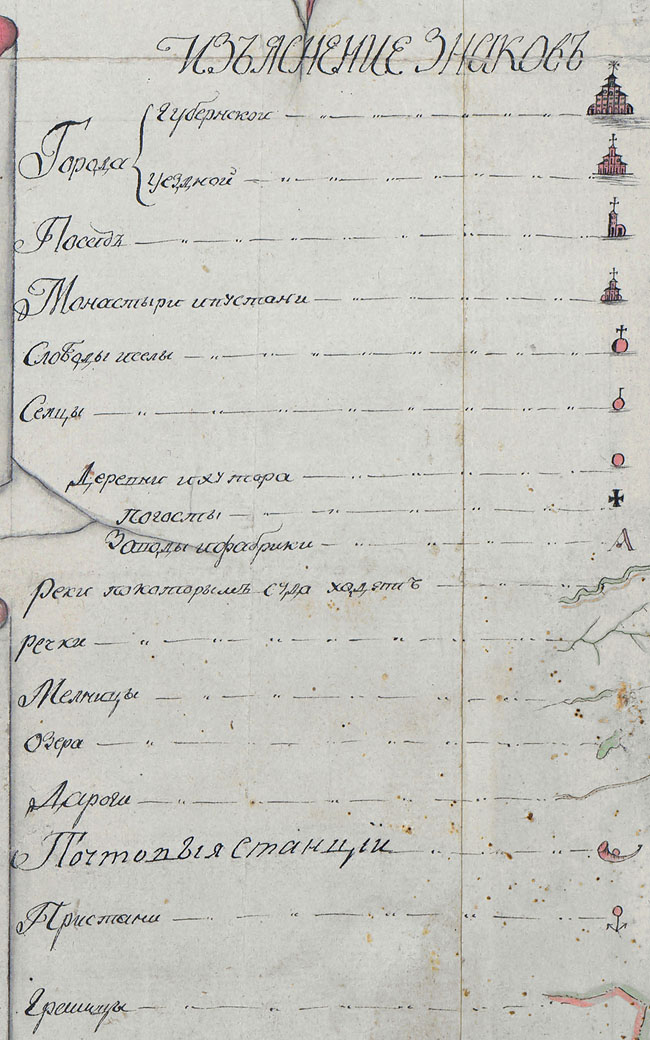 ИЗЪЯСНЕНИЕ ЗНАКОВЪ
Губернской
Города
Уездной
Посадъ
Монастыри ипустани
Слободы иселы
Селцы
Деревни ихутора
погосты
Заводы ифабрики
реки покоторымъ суда ходетъ
речки
Мелницы
озера
Дароги
Почтовыя станции
Пристани
Границы